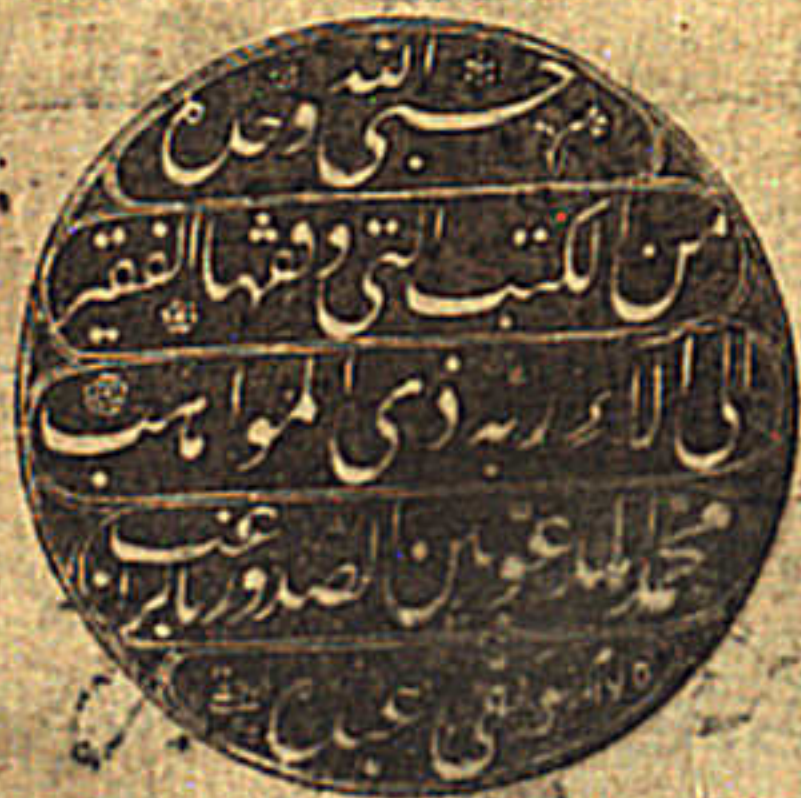 حسبى الله وحده
من الكتب التى وقفها الفقير
الى آلاء ربه ذى المواهب
محمد المدعو بين الصدور براغب
وكفى عبده